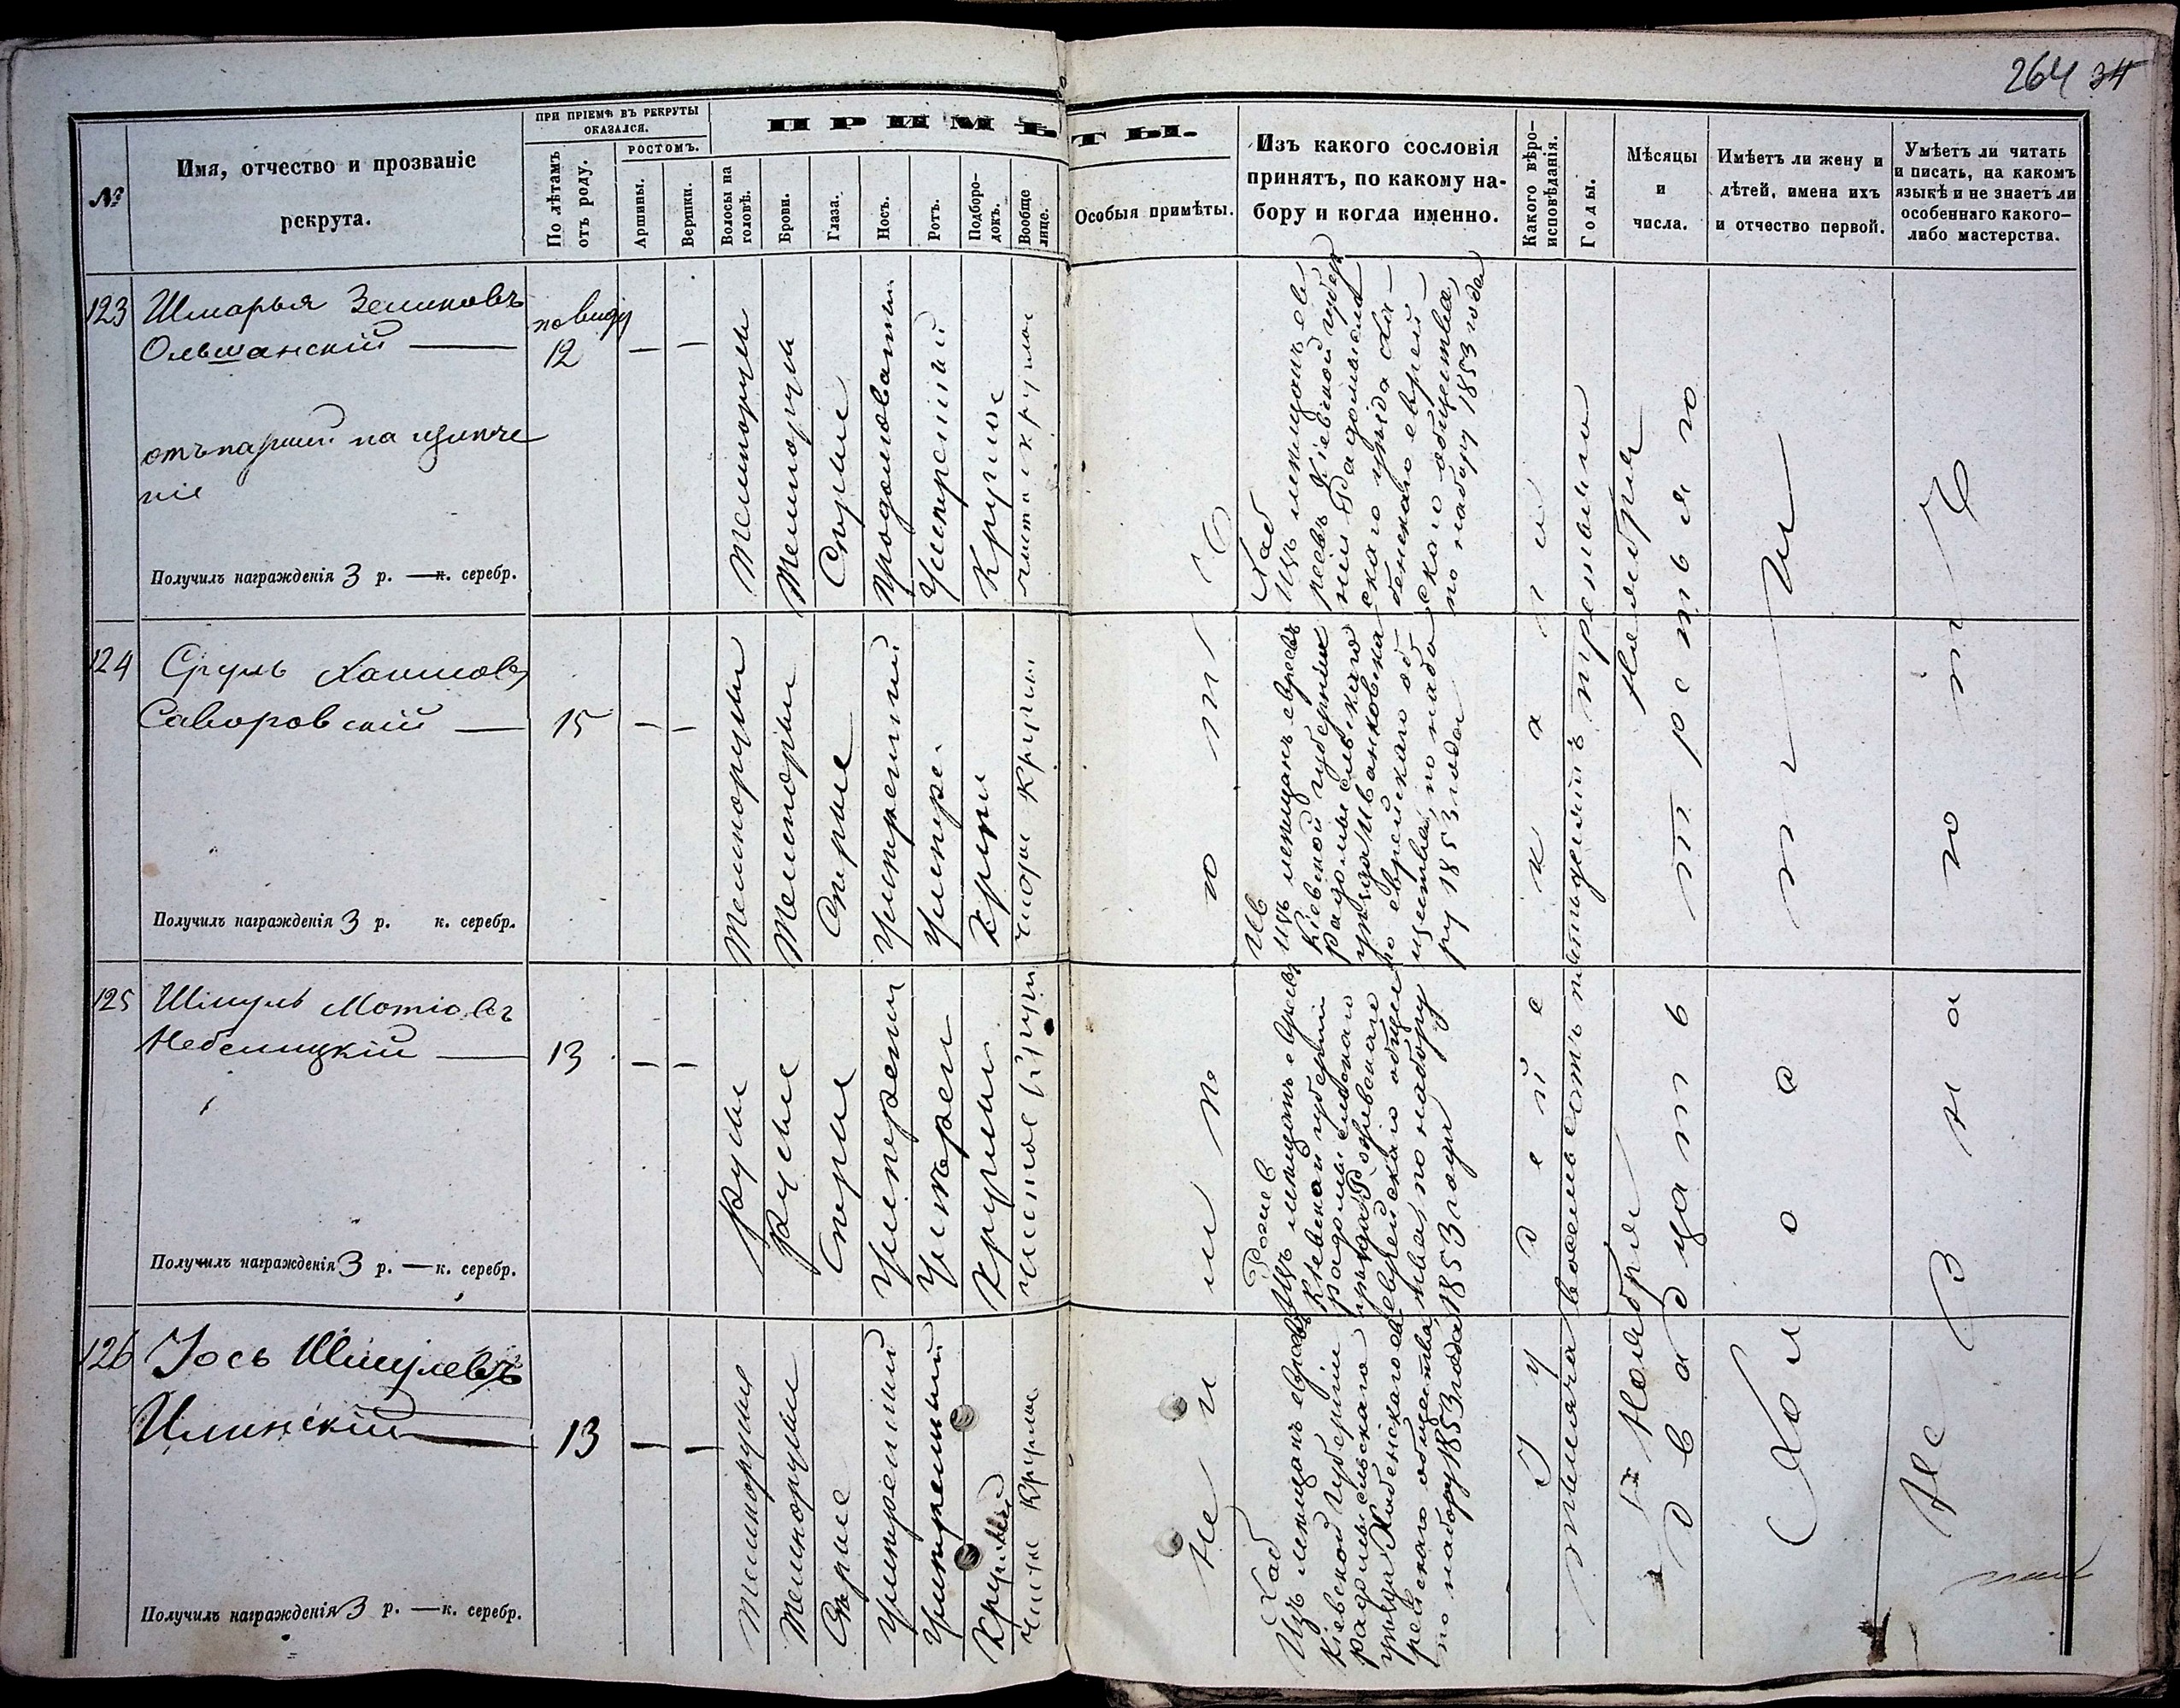 264 34
№
Имя, отчество и прозваніе
рекрута.
ПРИ ПРІЕМѢ ВЪ РЕКРУТЫ
ОКАЗАЛСЯ.
По лѣтамъ
отъ роду.
РОСТОМЪ.
Аршины.
Вершки.
ПРИМѢТЫ.
Волосы на
головѣ.
Брови.
Глаза.
Носъ.
Ротъ.
Подборо-
докъ.
Вообще
лице.
Особыя примѣты.
Изъ какого сословія
принятъ, по какому на-
бору и когда именно.
Какого вѣро-
исповѣданія.
Годы.
Мѣсяцы
и
числа.
Имѣетъ ли жену и
дѣтей, имена ихъ
и отчество первой.
Умѣетъ ли читать
и писать, на какомъ
языкѣ и не знаетъ ли
особеннаго какого-
либо мастерства.
123
Шмарья Зеликовъ
Ольшанскій
по виду
12
— —
отъ партіи на излече
ніе
Получилъ награжденія 3 р. — к. серебр.
Темнорусы
Темнорусы
Сѣрые
Продолговатый
Умѣренный
Круглое
чистое круглое
Хаб
Изъ мещанъ ев
реевъ Кіевской губер
ніи Радомысль
скаго уѣзда Ха-
бенскаго еврей-
скаго общества,
по набору 1853 года
124
Сруль Хаимовъ
Саворовскій
15
— —
Получилъ награжденія 3 р. к. серебр.
Темнорусы
Темнорусы
Сѣрые
Умѣренный
Умѣре.
Кругл
Ив
Изъ мещанъ евреевъ
Кіевской губерніи
Радомысльскаго
уѣзда Иванковска
го еврейскаго об
щества, по набо
ру 1853 года
125
Шмуль Мотіовъ
Небелицкій
13
— —
Получилъ награжденія 3 р. — к. серебр.
Русы
Русые
Сѣры
Умѣрены
Умѣрен
Круглы
чистое кругл
Изъ мещанъ евреевъ
Кіевской губерніи
Радомысльскаго
уѣзда
еврейскаго общес
тва, по набору
1853 года
126
Іось Шмулевъ
Илинскій
13
— —
Получилъ награжденія 3 р. — к. серебр.
Темнорусые
Темнорусы
Сѣрые
Умѣренный
Умѣренный
Круглый
Чистое круглое
Хаб
Изъ мещанъ евреевъ
Кіевской губерніи
Радомысльскаго
уѣзда Хабенскаго ев
рейскаго общества,
по набору 1853 года
Не имѣетъ
Іудейскаго
Тысяча восемьсотъ пятьдесятъ третьяго
Ноября
двадцать третьяго
Холостъ
Не знаютъ